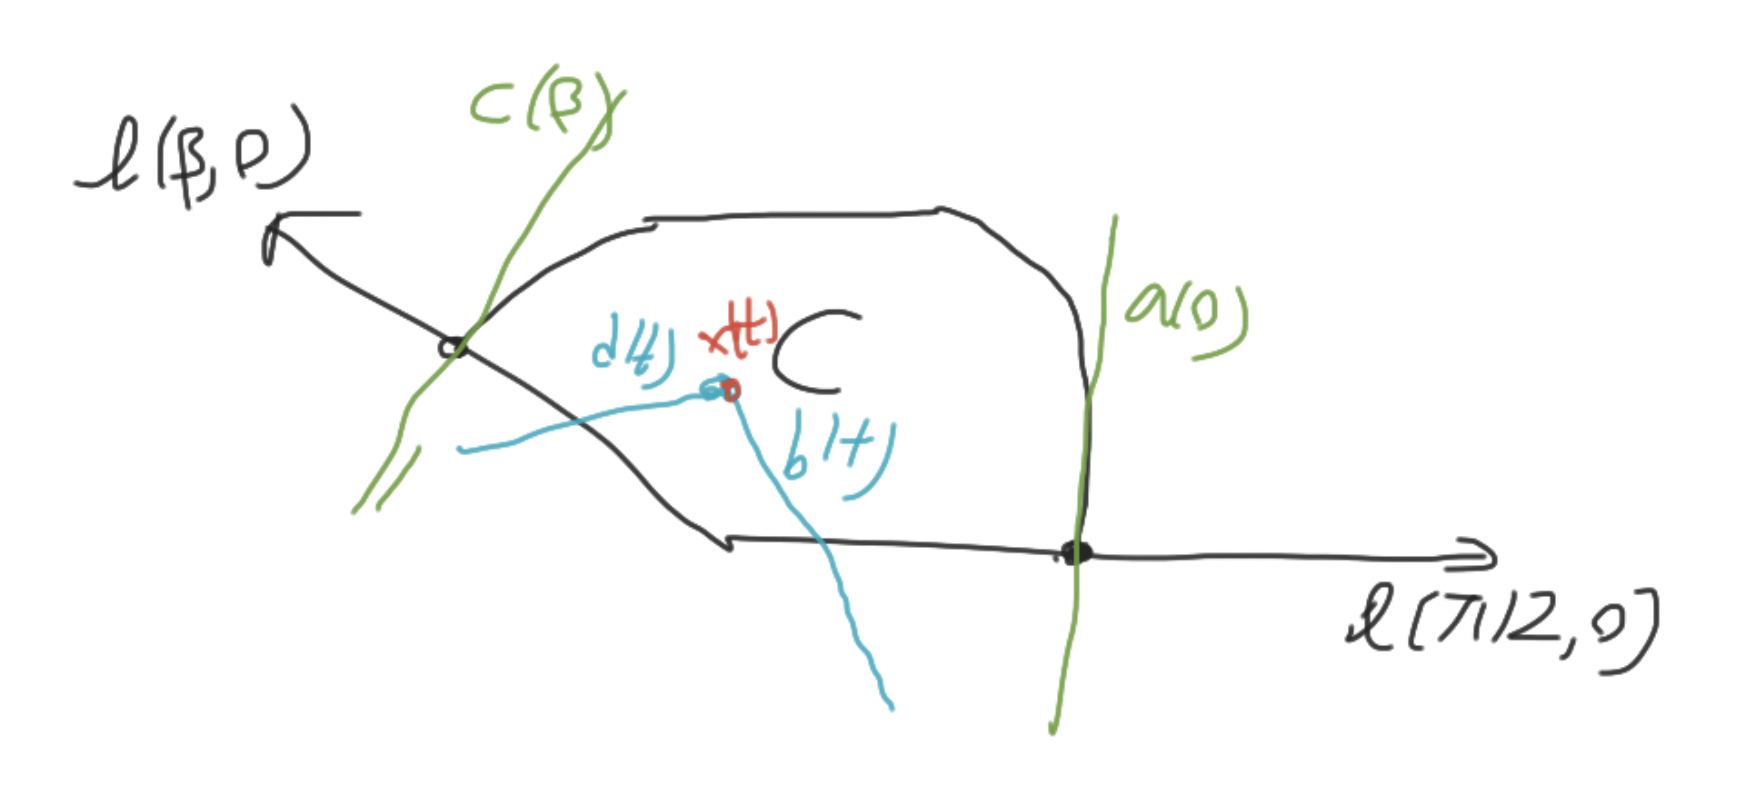 c(β)
l(β,0)
a(0)
x(t)
d(t)
C
b(t)
l(π/2,0)